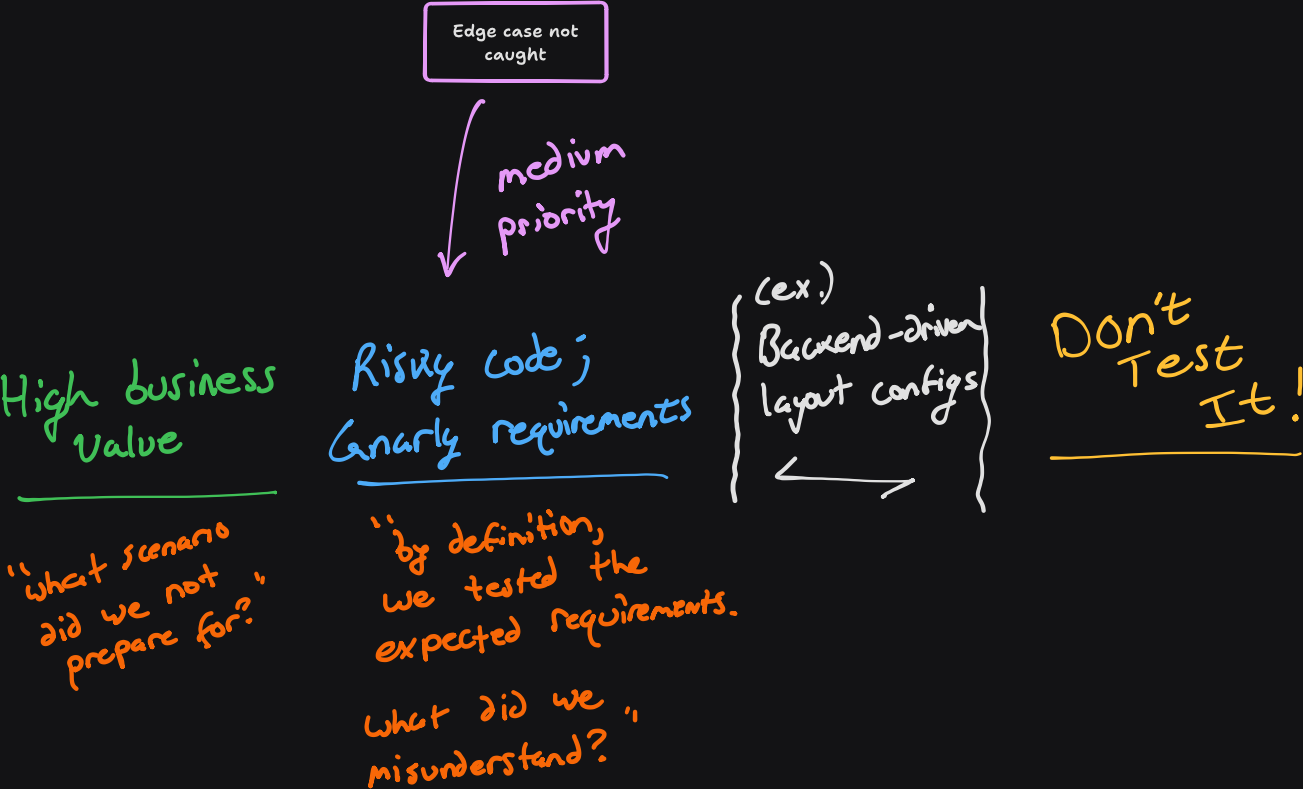 Edge case not
caught
medium
priority
High business
value
"what scenario
did we not
prepare for?"
Risky code;
Gnarly requirements
"by definition,
we tested the
expected requirements.
what did we
misunderstand?"
(ex.)
Backend-driven
layout configs
Don't
Test
It!